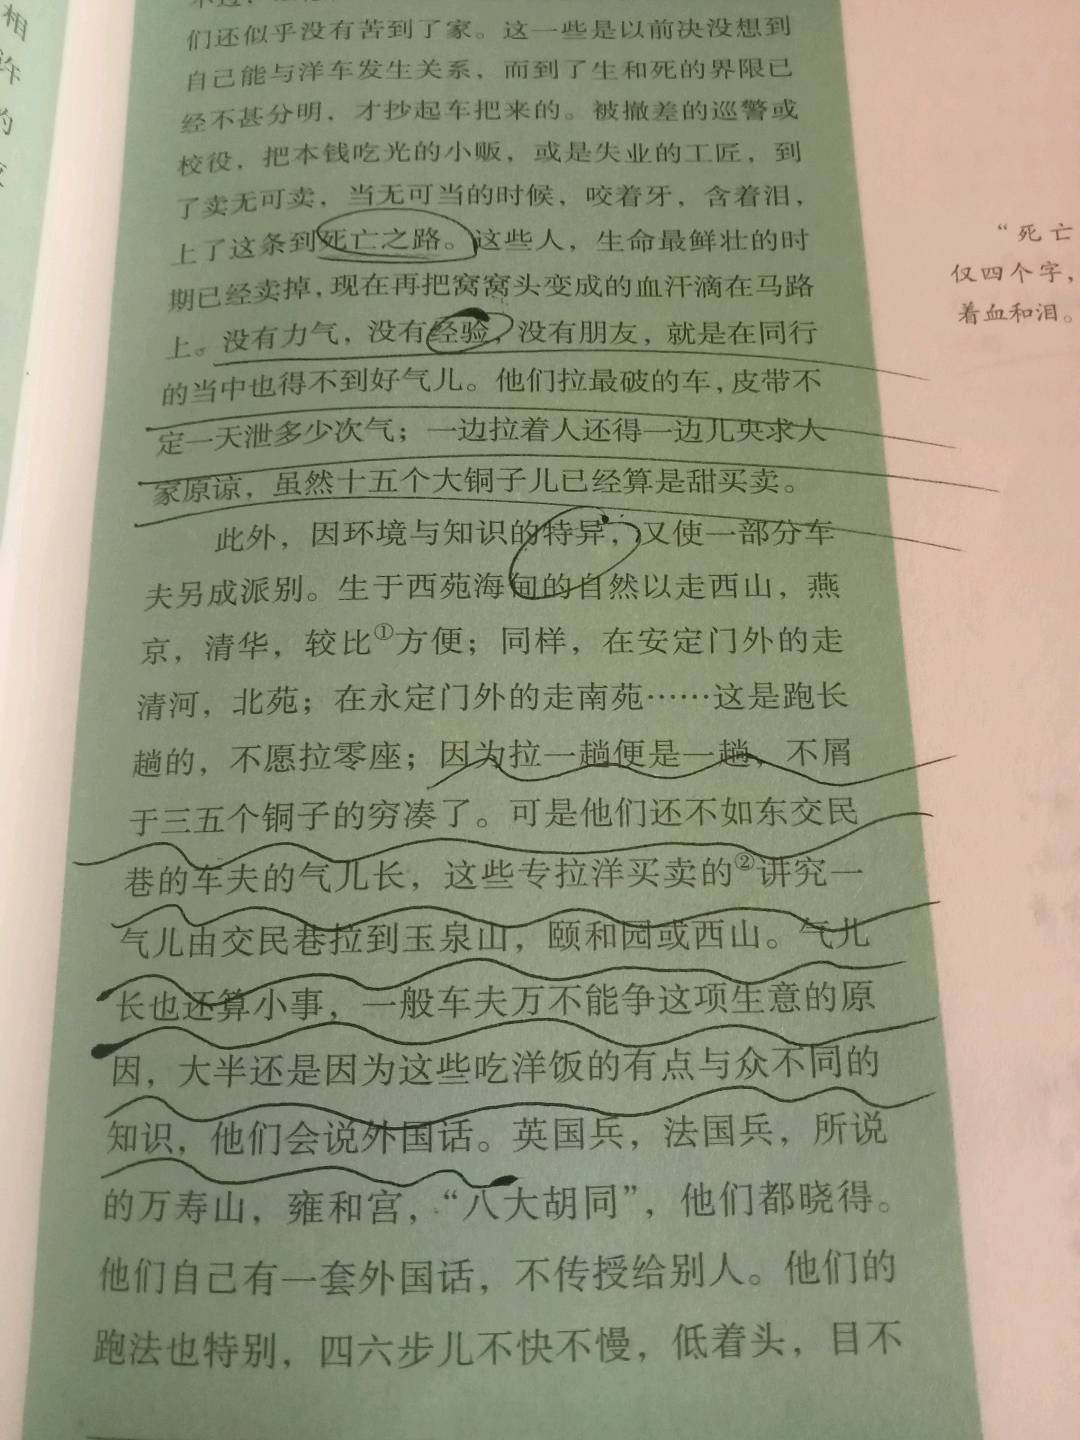 们还似乎没有苦到了家。这一些是以前决没想到
自己能与洋车发生关系，而到了生和死的界限已
经不甚分明，才抄起车把来的。被撤差的巡警或
校役，把本钱吃光的小贩，或是失业的工匠，到
了卖无可卖，当无可当的时候，咬着牙，含着泪，
上了这条到死亡之路。这些人，生命最鲜壮的时
期已经卖掉，现在再把窝窝头变成的血汗滴在马路
上。没有力气，没有经验，没有朋友，就是在同行
的当中也得不到好气儿。他们拉最破的车，皮带不
定一天泄多少次气；一边拉着人还得一边儿央求人
家原谅，虽然十五个大铜子儿已经算是甜买卖。
此外，因环境与知识的特异，又使一部分车
夫另成派别。生于西苑海甸的自然以走西山，燕
京，清华，较比①方便；同样，在安定门外的走
清河，北苑；在永定门外的走南苑……这是跑长
趟的，不愿拉零座；因为拉一趟便是一趟，不屑
于三五个铜子的穷凑了。可是他们还不如东交民
巷的车夫的气儿长，这些专拉洋买卖的②讲究一
气儿由交民巷拉到玉泉山，颐和园或西山。气儿
长也还算小事，一般车夫万不能争这项生意的原
因，大半还是因为这些吃洋饭的有点与众不同的
知识，他们会说外国话。英国兵，法国兵，所说
的万寿山，雍和宫，“八大胡同”，他们都晓得。
他们自己有一套外国话，不传授给别人。他们的
跑法也特别，四六步儿不快不慢，低着头，目不
“死亡
仅四个字，
着血和泪。
相
许
的